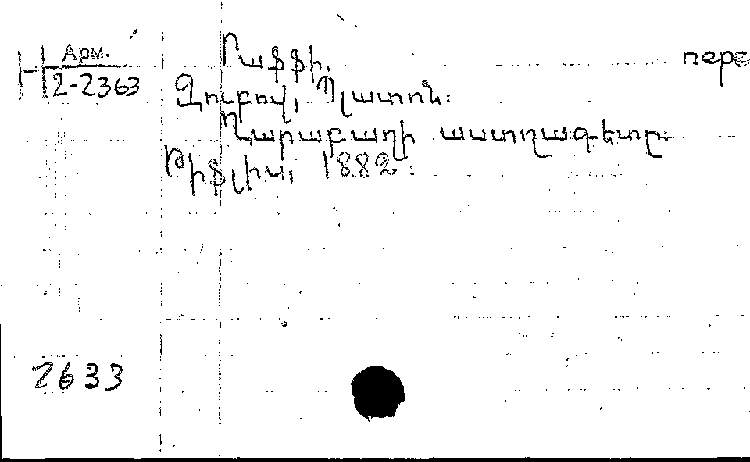 Арм.
Րաֆֆի.
пере
2-2363
Զուբով, Պլատոն:
Ղարաբաղի աստղագետը:
Թիֆլիս, 1882:
2633